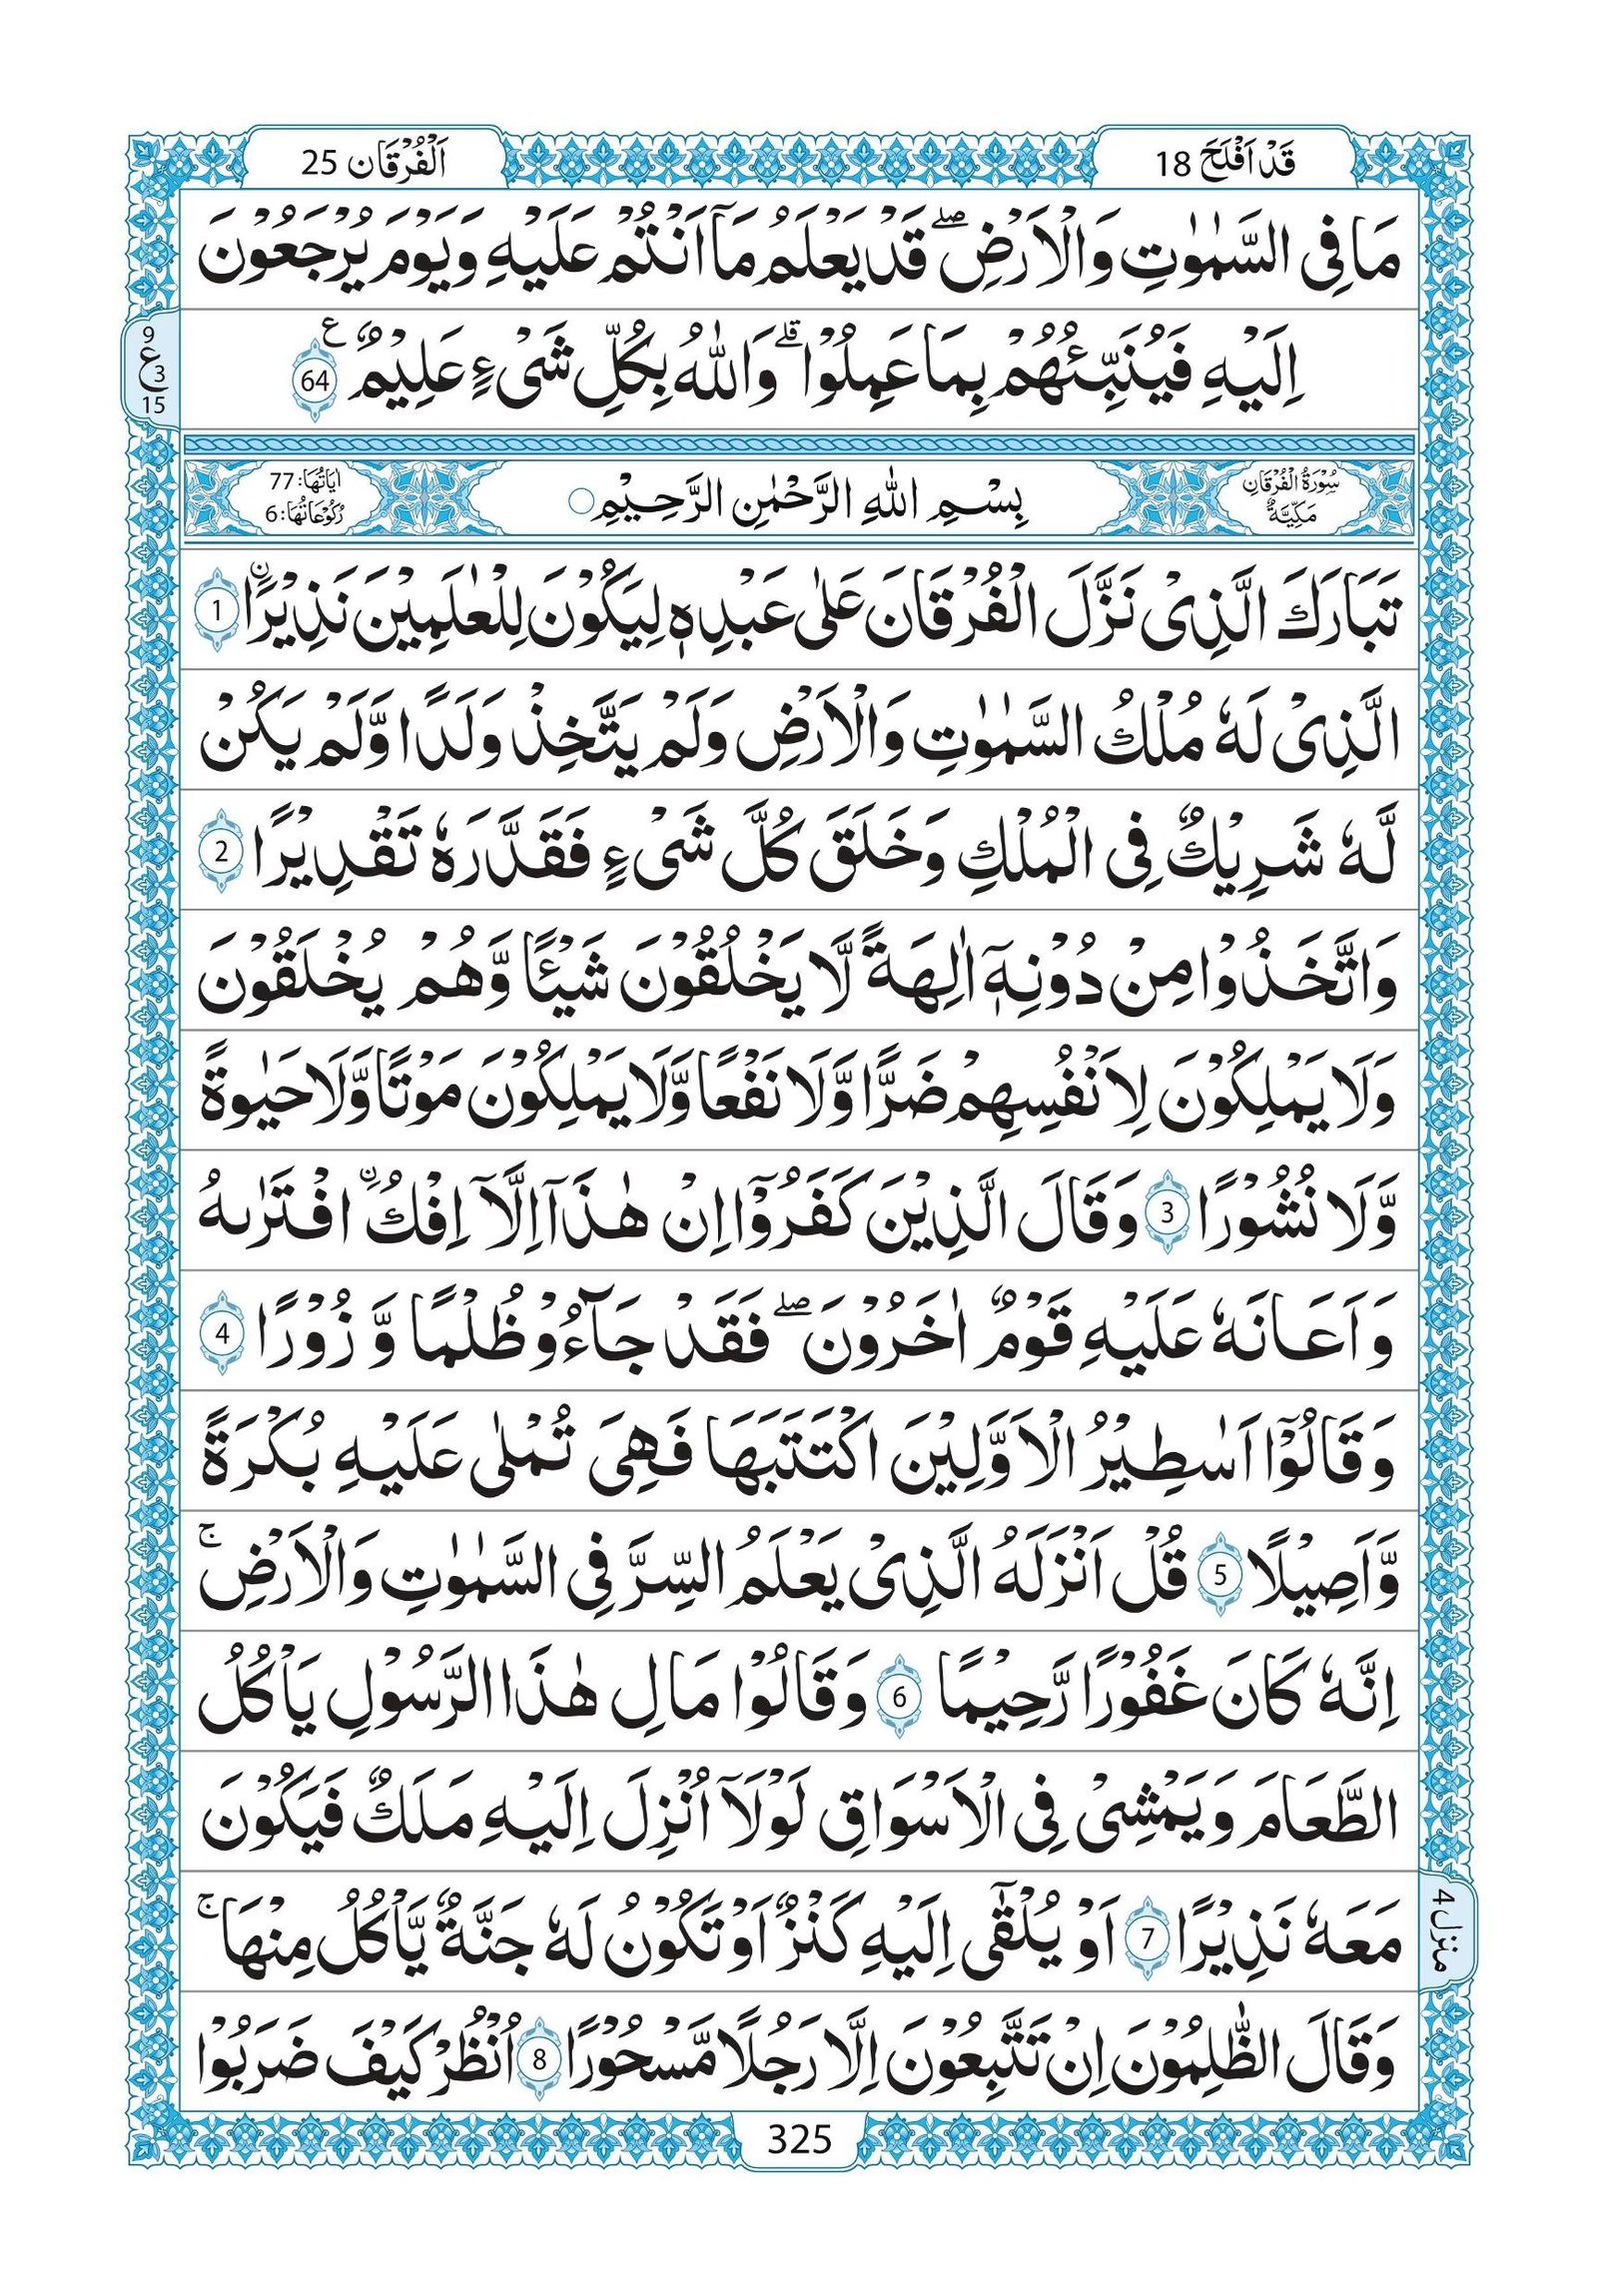 قَدْ اَفْلَحَ 18
اَلْفُرْقَان 25
مَا فِى السَّمٰوٰتِ وَالْاَرْضِ ؕ قَدْ يَعْلَمُ مَاۤ اَنْتُمْ عَلَيْهِ وَيَوْمَ يُرْجَعُوْنَ
اِلَيْهِ فَيُنَبِّئُهُمْ بِمَا عَمِلُوْا ؕ وَاللّٰهُ بِكُلِّ شَىْءٍ عَلِيْمٌ 64
9
ع 3
15
سُوْرَةُ الْفُرْقَانِ
مَكِّيَّةٌ
بِسْمِ اللّٰهِ الرَّحْمٰنِ الرَّحِيْمِ
اٰيَاتُهَا: 77
رُكُوْعَاتُهَا: 6
تَبَارَكَ الَّذِىْ نَزَّلَ الْفُرْقَانَ عَلٰى عَبْدِهٖ لِيَكُوْنَ لِلْعٰلَمِيْنَ نَذِيْرًا 1
الَّذِىْ لَهٗ مُلْكُ السَّمٰوٰتِ وَالْاَرْضِ وَلَمْ يَتَّخِذْ وَلَدًا وَّلَمْ يَكُنْ
لَّهٗ شَرِيْكٌ فِى الْمُلْكِ وَخَلَقَ كُلَّ شَىْءٍ فَقَدَّرَهٗ تَقْدِيْرًا 2
وَاتَّخَذُوْا مِنْ دُوْنِهٖۤ اٰلِهَةً لَّا يَخْلُقُوْنَ شَيْـًٔا وَّهُمْ يُخْلَقُوْنَ
وَلَا يَمْلِكُوْنَ لِاَنْفُسِهِمْ ضَرًّا وَّلَا نَفْعًا وَّلَا يَمْلِكُوْنَ مَوْتًا وَّلَا حَيٰوةً
وَّلَا نُشُوْرًا 3 وَقَالَ الَّذِيْنَ كَفَرُوْۤا اِنْ هٰذَاۤ اِلَّاۤ اِفْكٌ اۨفْتَرٰىهُ
وَاَعَانَهٗ عَلَيْهِ قَوْمٌ اٰخَرُوْنَ ۛۖ فَقَدْ جَآءُوْ ظُلْمًا وَّ زُوْرًا 4
وَقَالُوْۤا اَسٰطِيْرُ الْاَوَّلِيْنَ اكْتَتَبَهَا فَهِىَ تُمْلٰى عَلَيْهِ بُكْرَةً
وَّاَصِيْلًا 5 قُلْ اَنْزَلَهُ الَّذِىْ يَعْلَمُ السِّرَّ فِى السَّمٰوٰتِ وَالْاَرْضِ ۚ
اِنَّهٗ كَانَ غَفُوْرًا رَّحِيْمًا 6 وَقَالُوْا مَالِ هٰذَا الرَّسُوْلِ يَاْكُلُ
الطَّعَامَ وَيَمْشِىْ فِى الْاَسْوَاقِ لَوْلَاۤ اُنْزِلَ اِلَيْهِ مَلَكٌ فَيَكُوْنَ
مَعَهٗ نَذِيْرًا 7 اَوْ يُلْقٰۤى اِلَيْهِ كَنْزٌ اَوْ تَكُوْنُ لَهٗ جَنَّةٌ يَّاْكُلُ مِنْهَا ۚ
منزل 4
وَقَالَ الظّٰلِمُوْنَ اِنْ تَتَّبِعُوْنَ اِلَّا رَجُلًا مَّسْحُوْرًا 8 اُنْظُرْ كَيْفَ ضَرَبُوْا
325